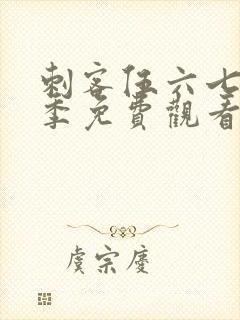 刺客伍六七
季免費觀看
虞宗慶